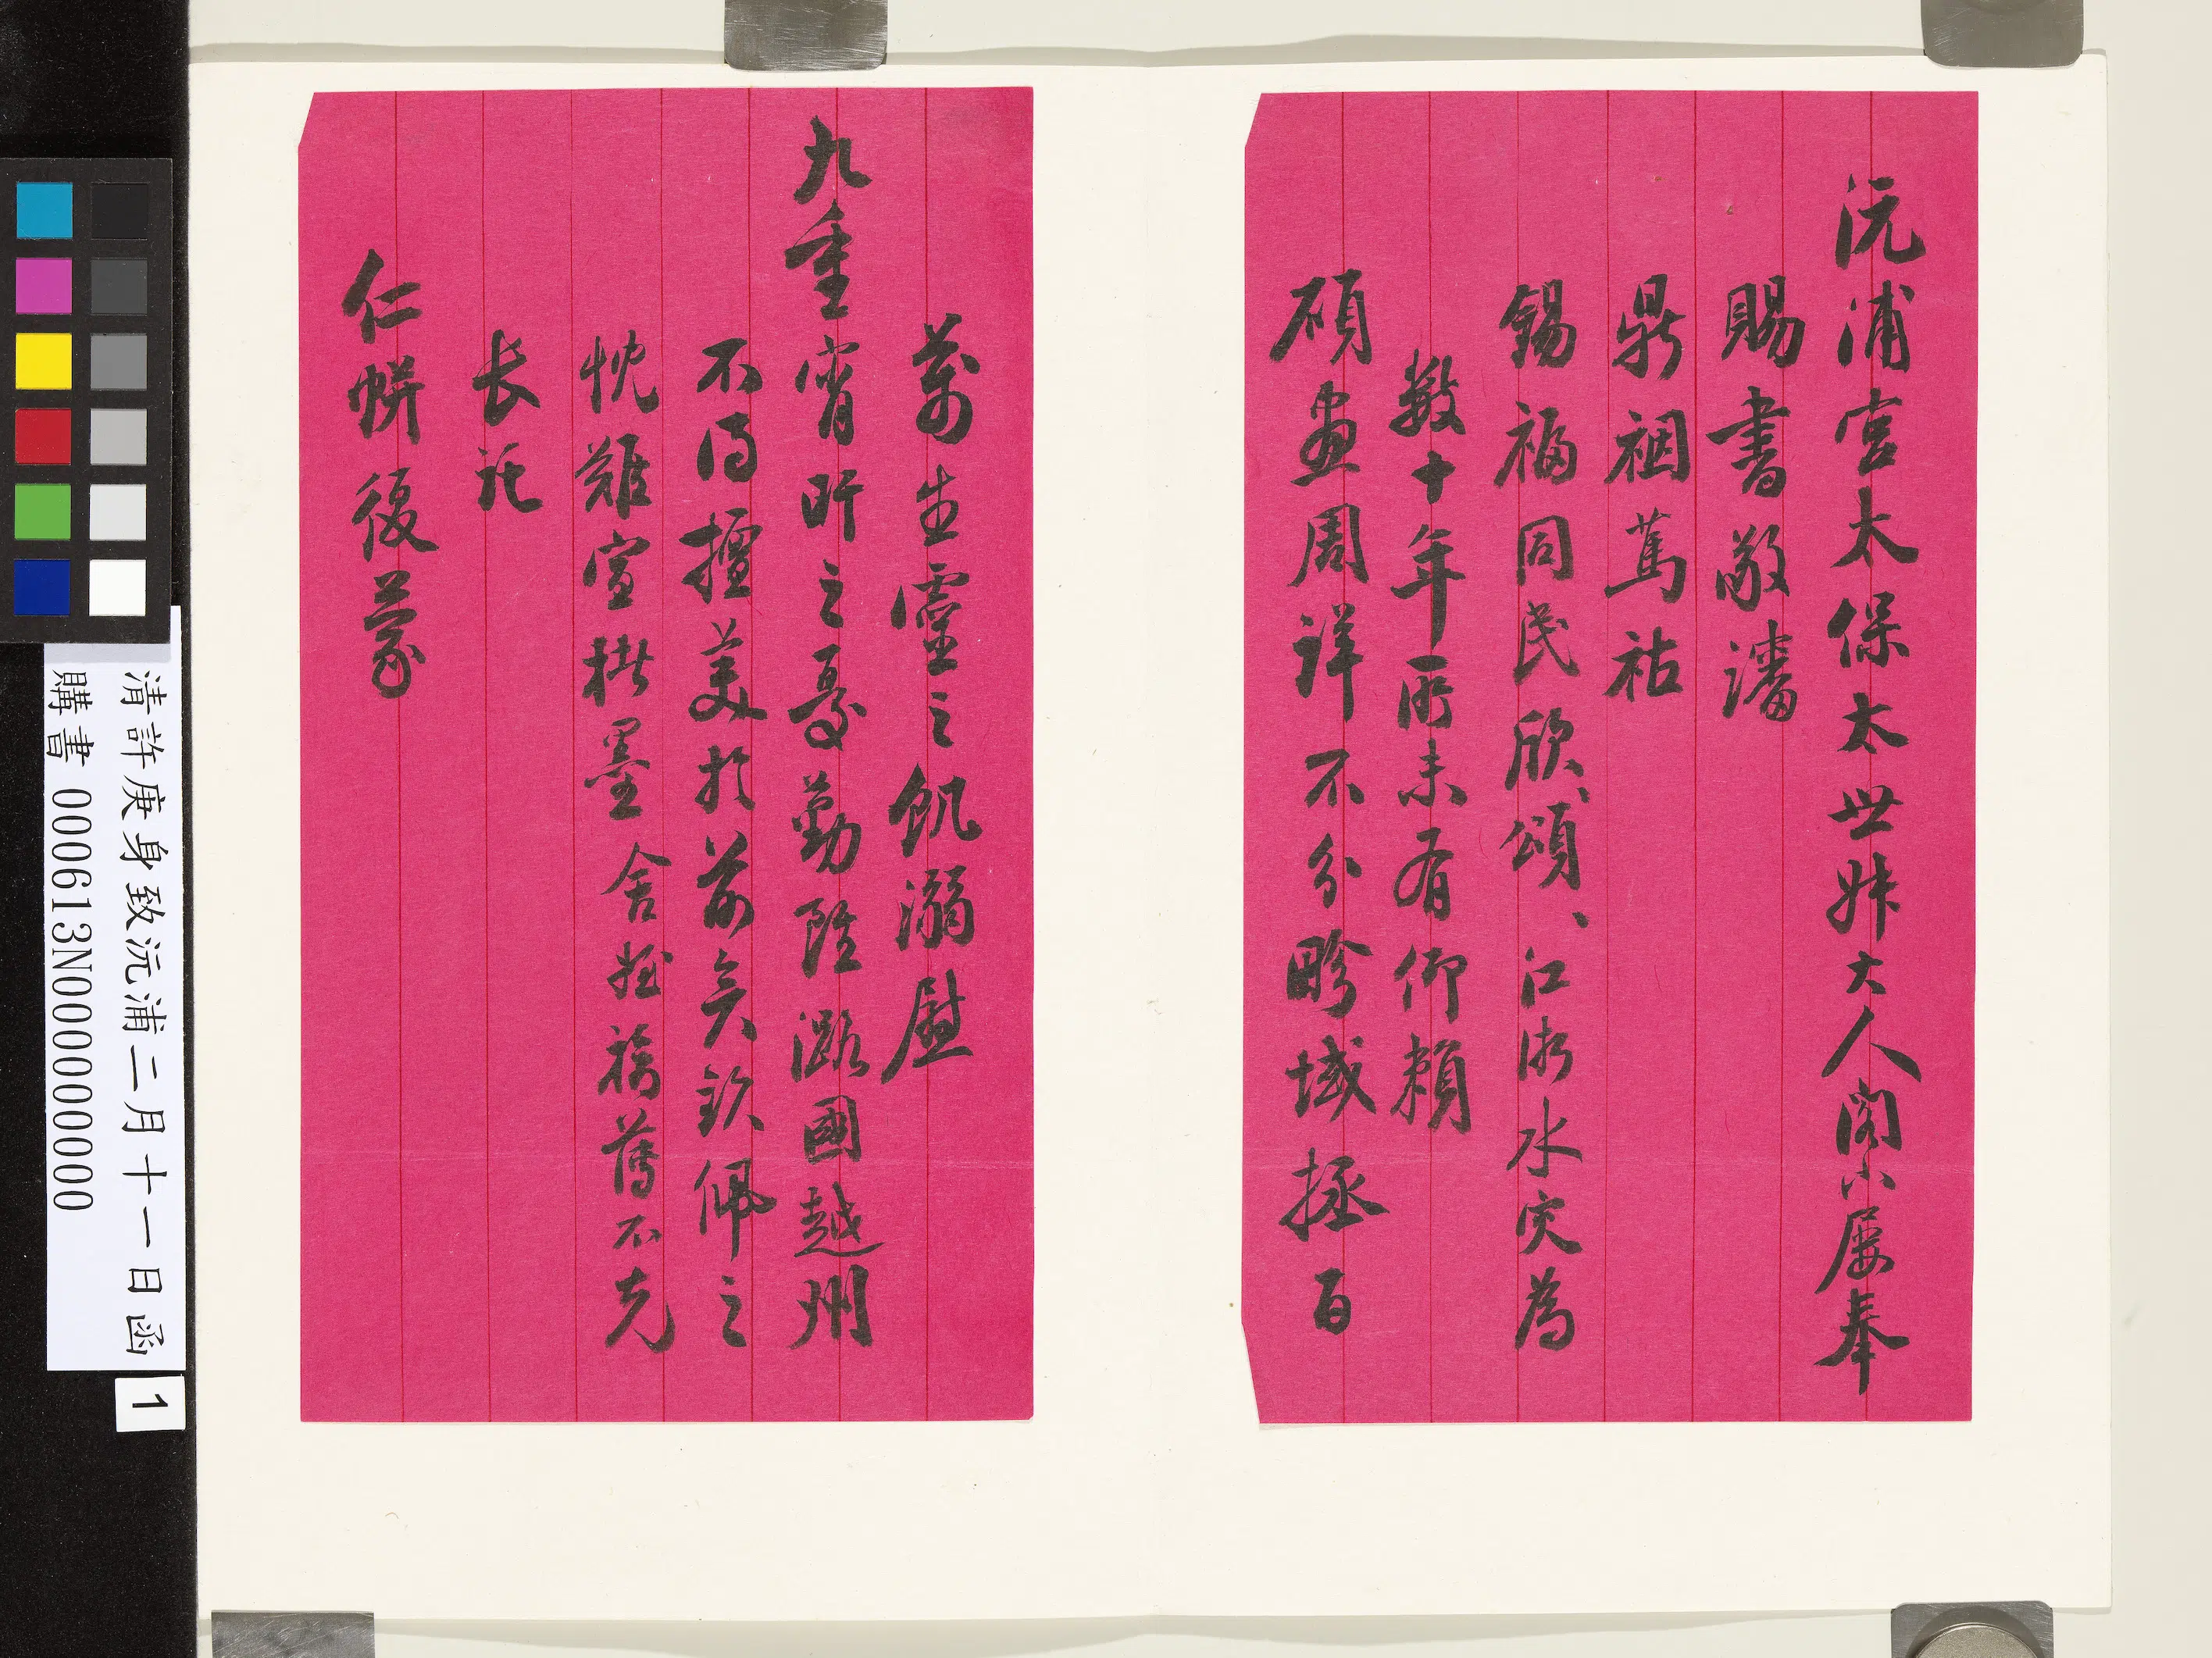 沅浦宮太保太世姊大人閣下屢奉
賜書敬讅
鼎祻篤祜
錫福同民欣頌欣頌江浙水灾為
數十年所未有仰賴
碩畫周詳不分畛域拯百
萬生靈之飢溺慰
九重宵旰之憂勤雖潞國越州
不得擅美於前矣欽佩之
忱難宣楮墨舍姪 舊不克
長託
仁帡復蒙
清許庚身致沅浦二月十一日函
購書 000613N000000000
1